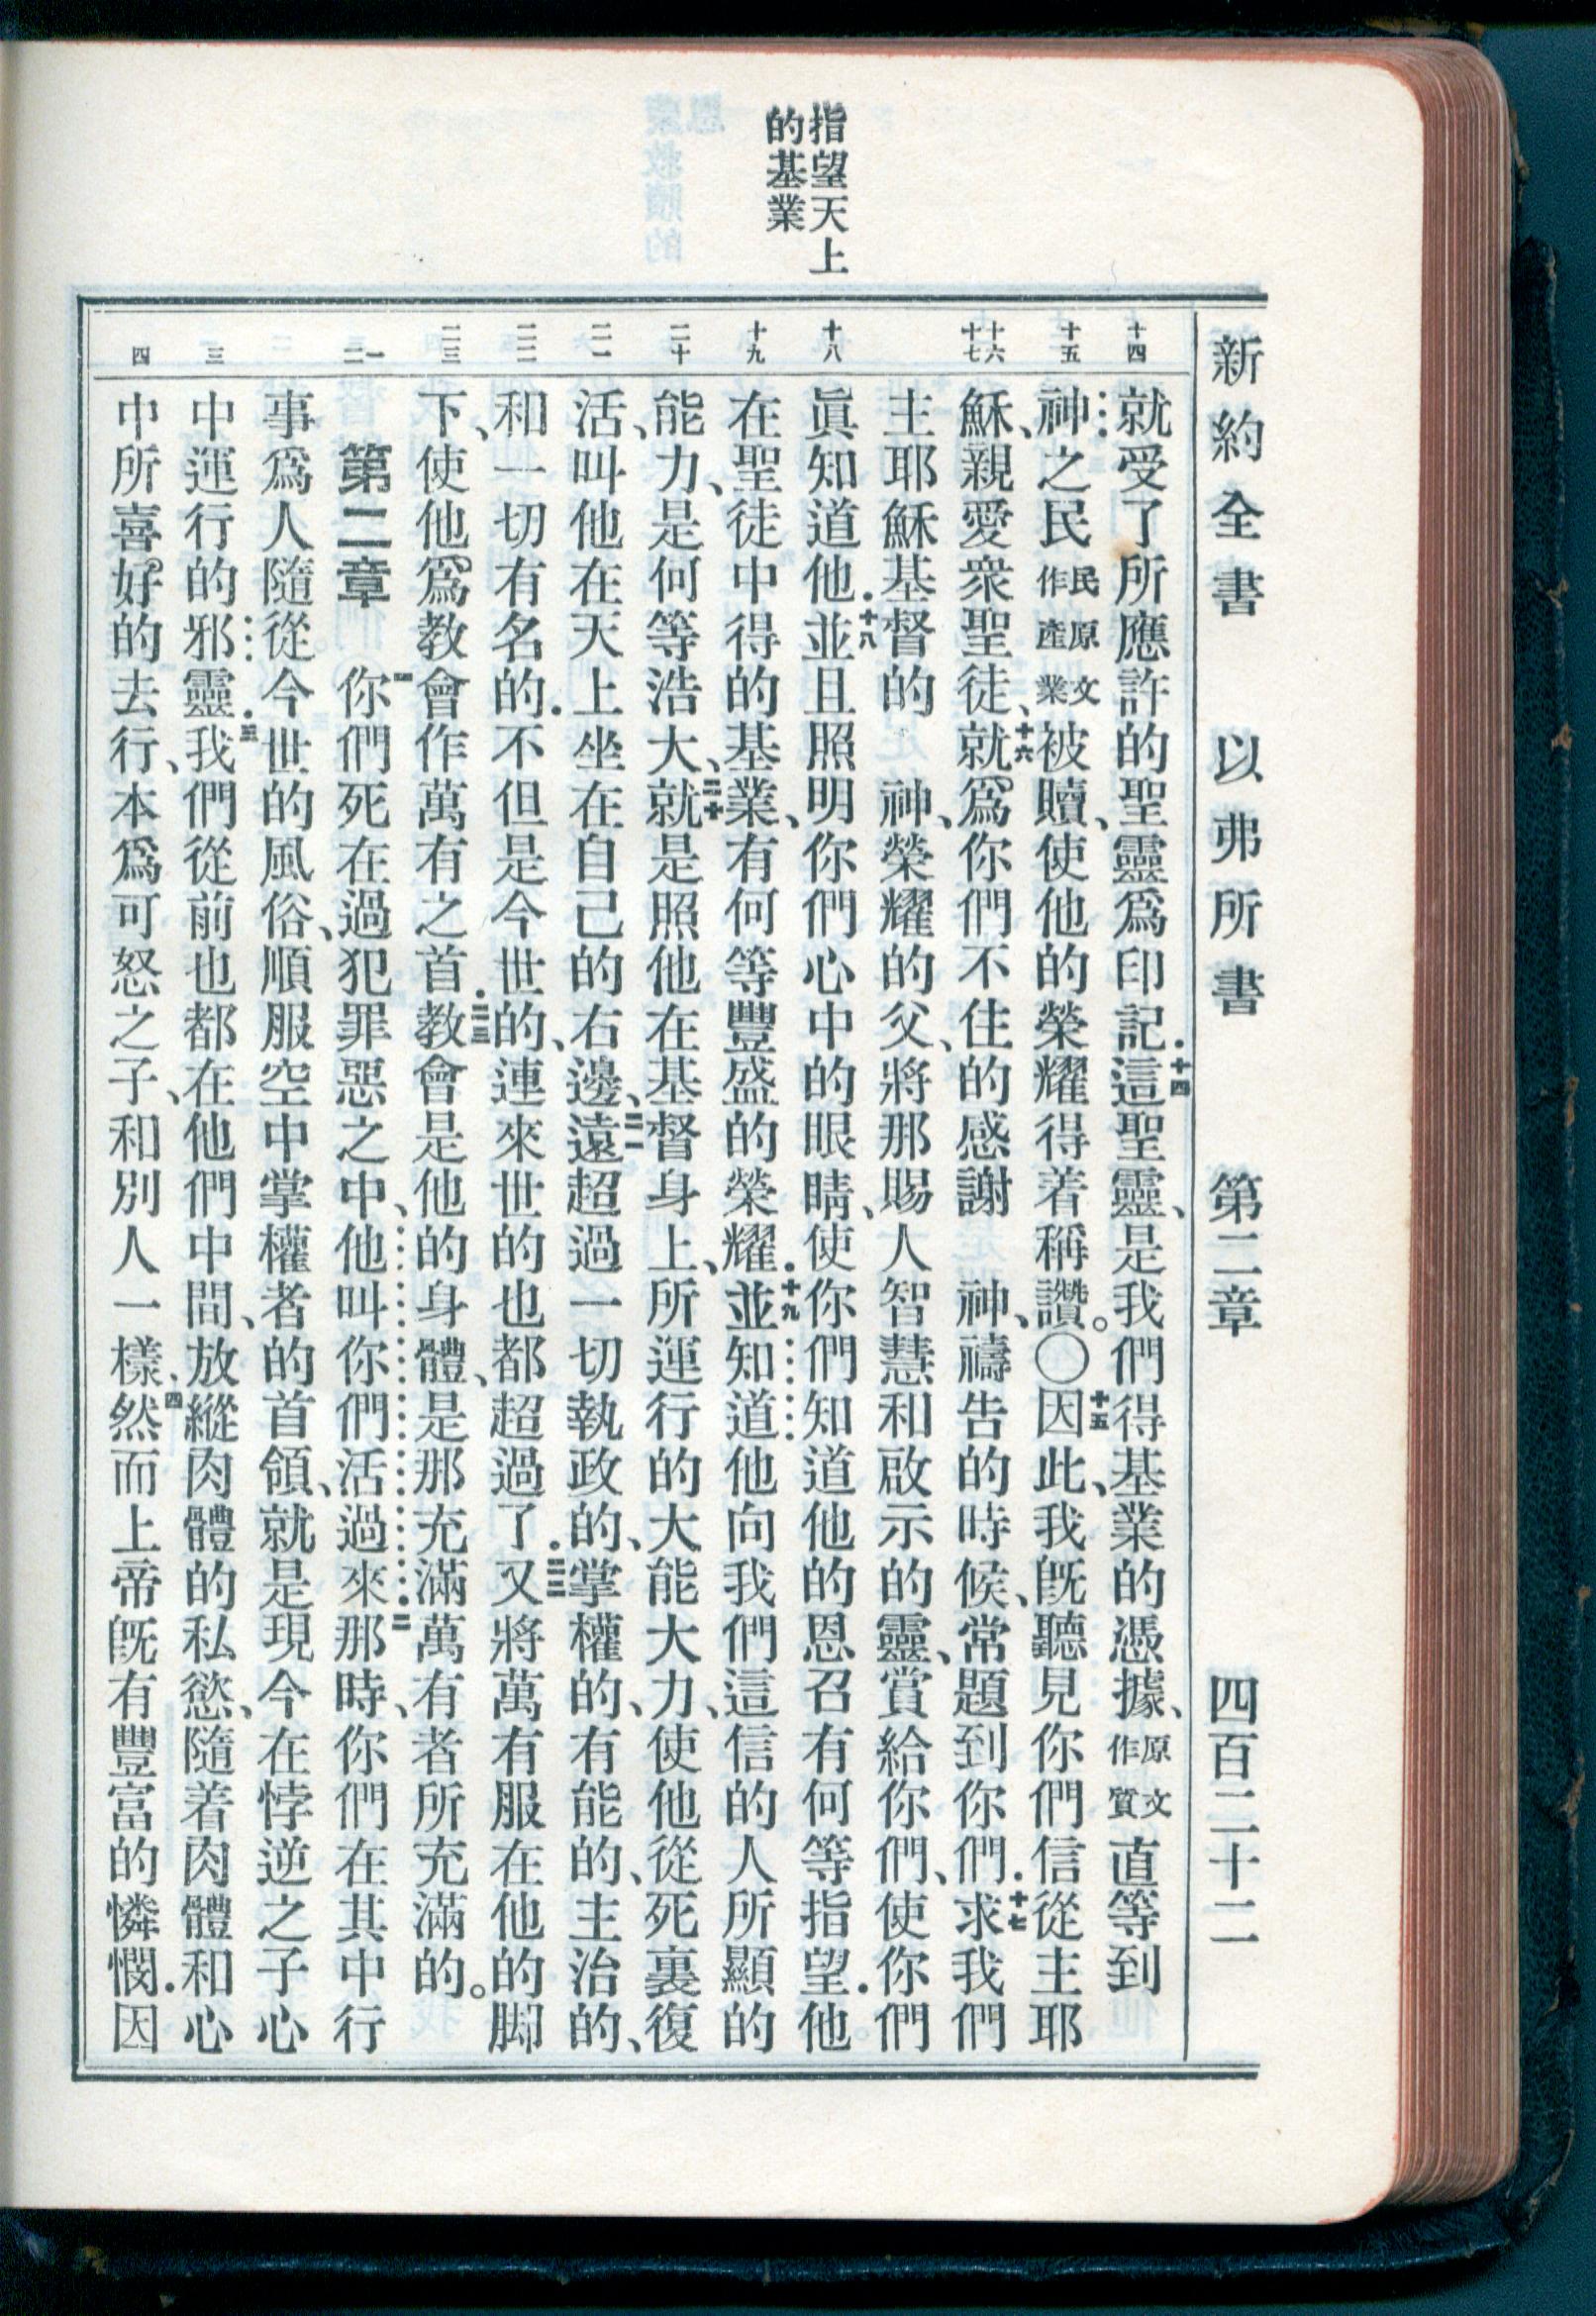 指望天上
的基業
新約全書 以弗所書 第二章 四百二十二
十四
十五
十六
十七
十八
十九
二十
二一
二二
二三
一
二
三
四
就受了所應許的聖靈爲印記．十四這聖靈、是我們得基業的憑據、原文作質直等到
神之民民原文作產業被贖、使他的榮耀得着稱讚。〇十五因此、我旣聽見你們信從主耶
穌、親愛衆聖徒、十六就爲你們不住的感謝 神、禱告的時候、常題到你們．十七求我們
主耶穌基督的 神、榮耀的父、將那賜人智慧和啟示的靈、賞給你們、使你們
眞知道他．十八並且照明你們心中的眼睛、使你們知道他的恩召有何等指望．他
在聖徒中得的基業、有何等豐盛的榮耀．十九並知道他向我們這信的人所顯的
能力、是何等浩大、二十就是照他在基督身上、所運行的大能大力、使他從死裏復
活、叫他在天上坐在自己的右邊、二一遠超過一切執政的、掌權的、有能的、主治的、
和一切有名的．不但是今世的、連來世的也都超過了．二二又將萬有服在他的脚
下、使他爲教會作萬有之首．二三教會是他的身體、是那充滿萬有者所充滿的。
第二章 一你們死在過犯罪惡之中、他叫你們活過來．二那時、你們在其中行
事爲人隨從今世的風俗、順服空中掌權者的首領、就是現今在悖逆之子心
中運行的邪靈．三我們從前也都在他們中間、放縱肉體的私慾、隨着肉體和心
中所喜好的去行、本爲可怒之子、和別人一樣、四然而上帝旣有豐富的憐憫．因